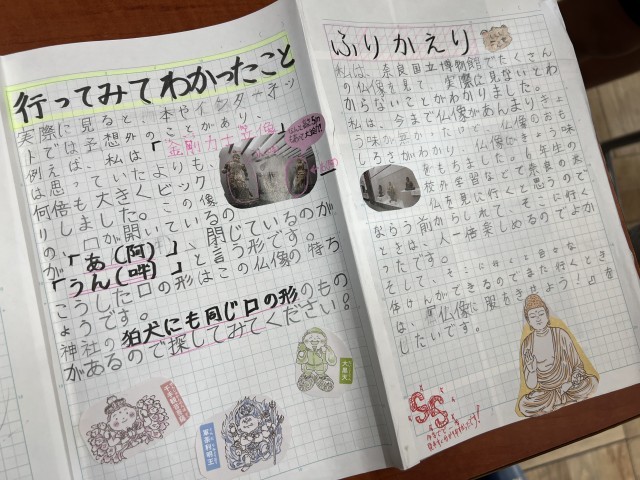 行ってみてわかったこと
実際に見ると、本やインターネッ
トでは予想外のことがあり、
例えば、私は「金剛力士立像」
は思っていたよりも
何倍も大きくビック
りしました。この像
の、口が開いているの
が、「あ(阿)」、閉じているのが
「うん(吽)」と言う形です。
こうした口の形はこの仏像の特ち
ょうです。
神社の狛犬にも同じ口の形のもの
があるので探してみてください!
大黒天
軍荼利明王
ふりかえり
私は、奈良国立博物館でたくさん
の仏像を見て、実際に見ないとわ
からないことがわかりました。
私は、今まで仏像があんまりきょ
う味が無かったけど、仏像のおも
しろさがわかり、仏像にきょう味
をもちました。6年生の
校外学習などで奈良の大
仏を見に行くと思うので
ならう前からしれて、そこに行く
ときは、人一倍楽しめるのでよか
ったです。
そして、そこに行くと色々な
体けんができるのでまた行くとき
は、「仏像に服をきせよう!」を
したいです。
SS